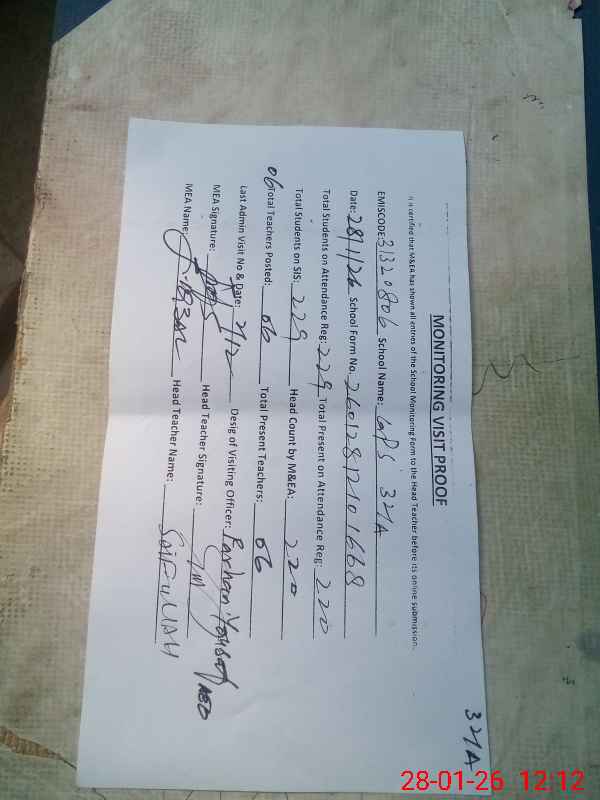 MONITORING VISIT PROOF
It is certified that M&EA has shown all entries of the School Monitoring Form to the Head Teacher before its online submission.
EMISCODE 31320806 School Name: GPS 32/A
Date: 28/1/26 School Form No. 26012812101668
Total Students on Attendance Reg: 229 Total Present on Attendance Reg: 220
Total Students on SIS: 229 Head Count by M&EA: 220
06 Total Teachers Posted: 06 Total Present Teachers: 06
Last Admin Visit No & Date: 2/12 Desig of Visiting Officer: Farhan Yousaf AEO
MEA Signature: Head Teacher Signature:
MEA Name: Head Teacher Name: SAIFULLAH
32/A
28-01-26 12:12